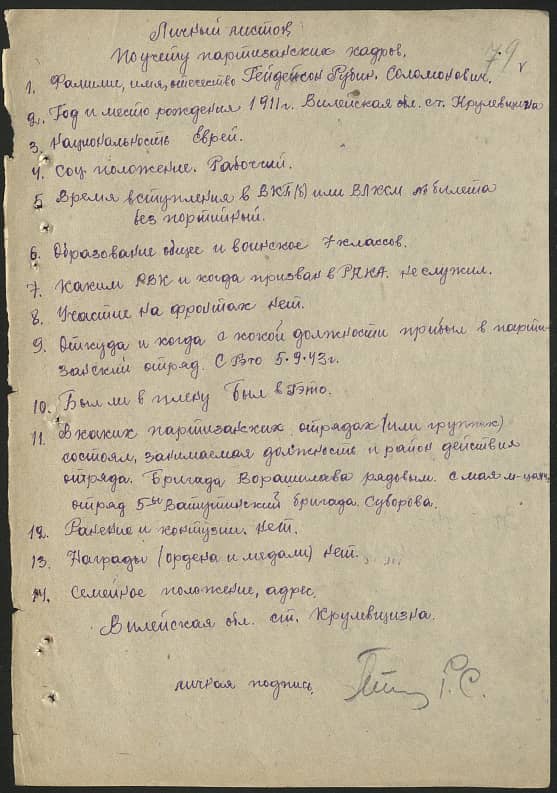 Личный листок
По учету партизанских кадров.
79
1. Фамилие, имя, отчество Гейденсон Рубин. Соломонович.
2. Год и место рождения 1911 г. Вилейская обл. ст. Крулевщизна
3. Национальность Еврей.
4. Соц положение. Рабочий.
5 Время вступления в ВКП(б) или ВЛКСМ № билета
без портийный.
6. Образование общее и воинское 7 классов.
7. Каким РВК и когда призван в РККА. не служил.
8. Участие на фронтах нет.
9. Откуда и когда с какой должности прибыл в парти-
занский отряд. С 5.9.43 г.
10. Был ли в плену Был в Гэто.
11. В каких партизанских отрядах (или группах)
состоял, занимаемая должность и район действия
отряда. Бригада Ворашилава рядовым. с мая м-ца
отряд 5ый Ватутинский бригада. Суворова.
12. Ранение и контузии. нет.
13. Награды (ордена и медали) нет.
14. Семейное положение, адрес.
Вилейская обл. ст. Крулевщизна.
личная подпись Р.С.